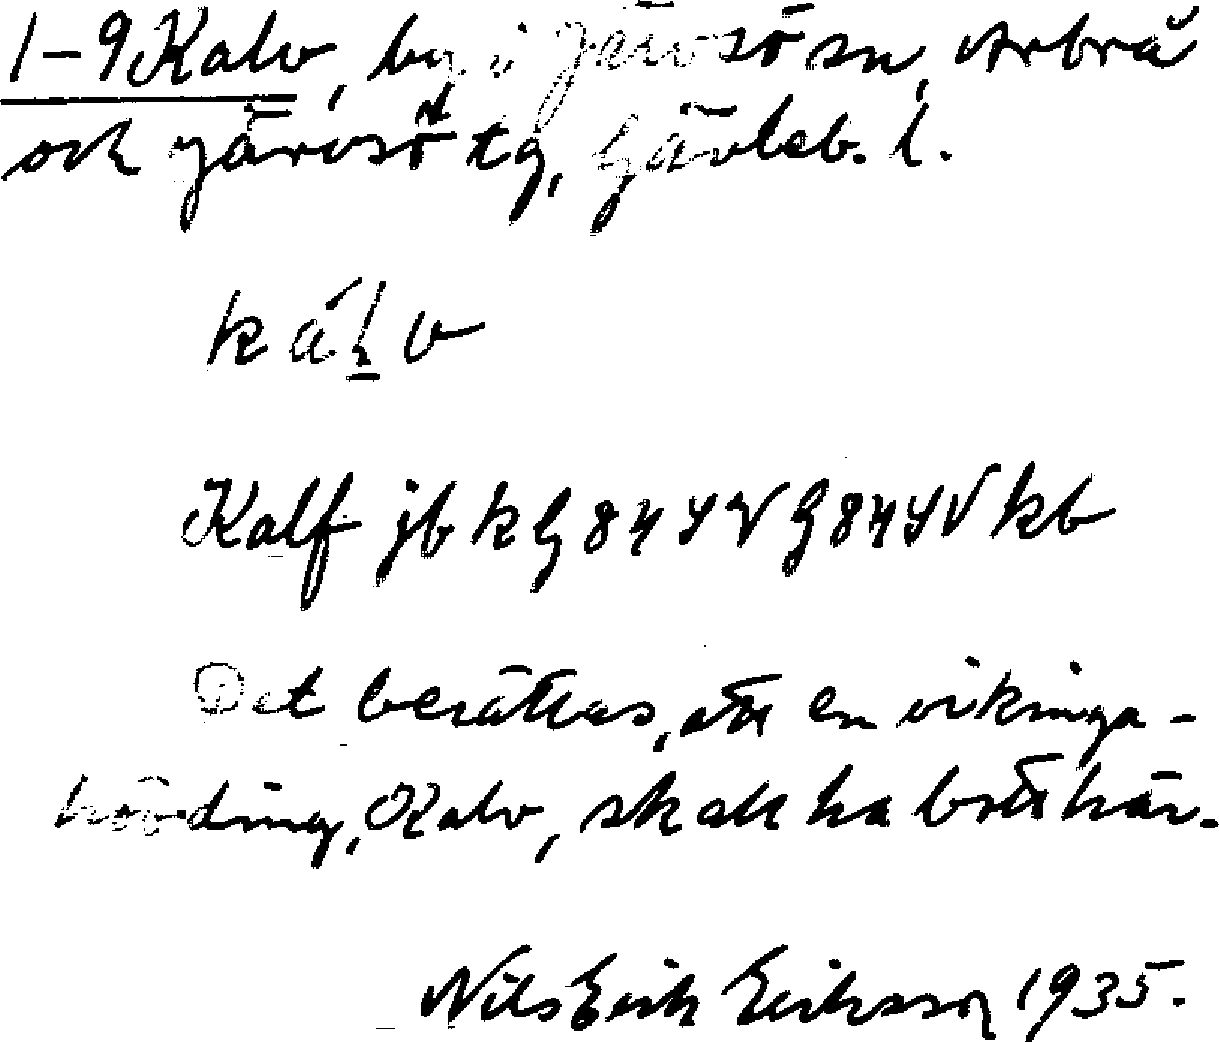 1-9 Kalv, by i Järvsö sn, Arbrå
och Järvsö tg, Gävleb. l.
kálv
Kalf jb k G 844 V G 844 V kb
Det berättas, att en vikinga-
hövding, Kalv, skall ha bott här.
Nils Erik Eriksson 1935.